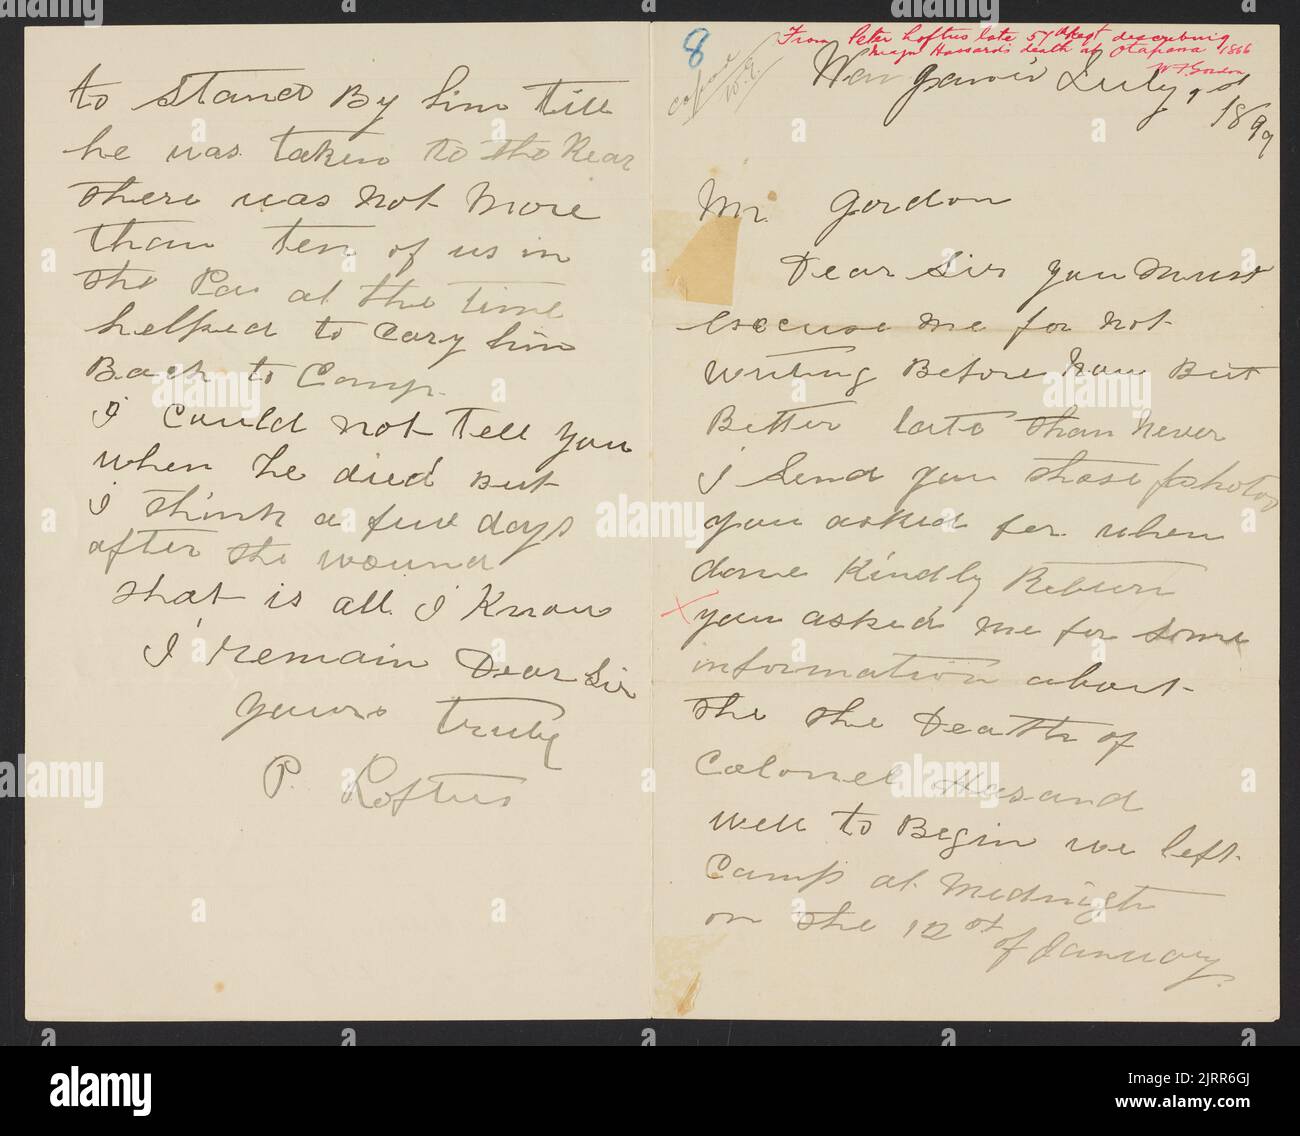 8
From Peter Loftus late 57th Regt describing
Major Hassard's death at Otapawa 1866
W F Gordon
copied
Wanganui July 1st
1899
Mr. Gordon
Dear Sir you must
excuse me for not
writing Before now But
Better late than never
I Send you those photos
you asked for when
done Kindly Return
you asked me for some
information about
the the Death of
Colonel Hasand
well to Begin we left
Camp at Midnight
on the 12st of January.
to Stand By him till
he was taken to the Rear
there was not more
than ten of us in
the Paa at the time
helped to Cary him
Back to Camp.
I could not tell you
when he died But
I think a few days
after the wound
that is all I Know
I remain Dear Sir
yours truly
P. Loftus
alamy
Image ID: 2JRR6GJ
www.alamy.com